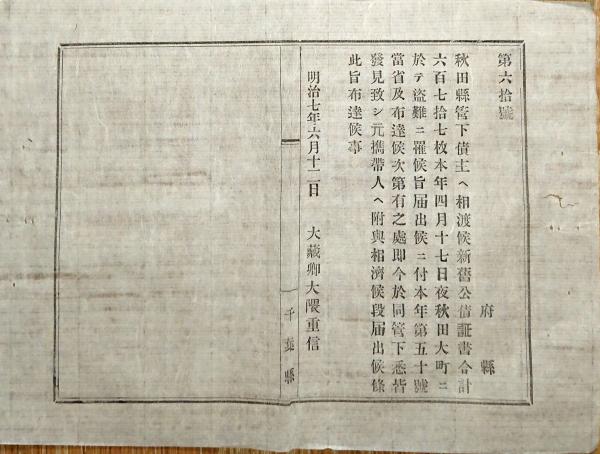 第六拾號
府縣
秋田縣管下債主ヘ相渡候新舊公債証書合計
六百七拾七枚本年四月十七日夜秋田大町ニ
於テ盗難ニ罹候旨届出候ニ付本年第五十號
當省及布達候次第有之處即今於同管下悉皆
發見致シ元攜帶人ヘ附與相濟候段届出候條
此旨布達候事
明治七年六月十二日 大藏卿大隈重信
千葉縣